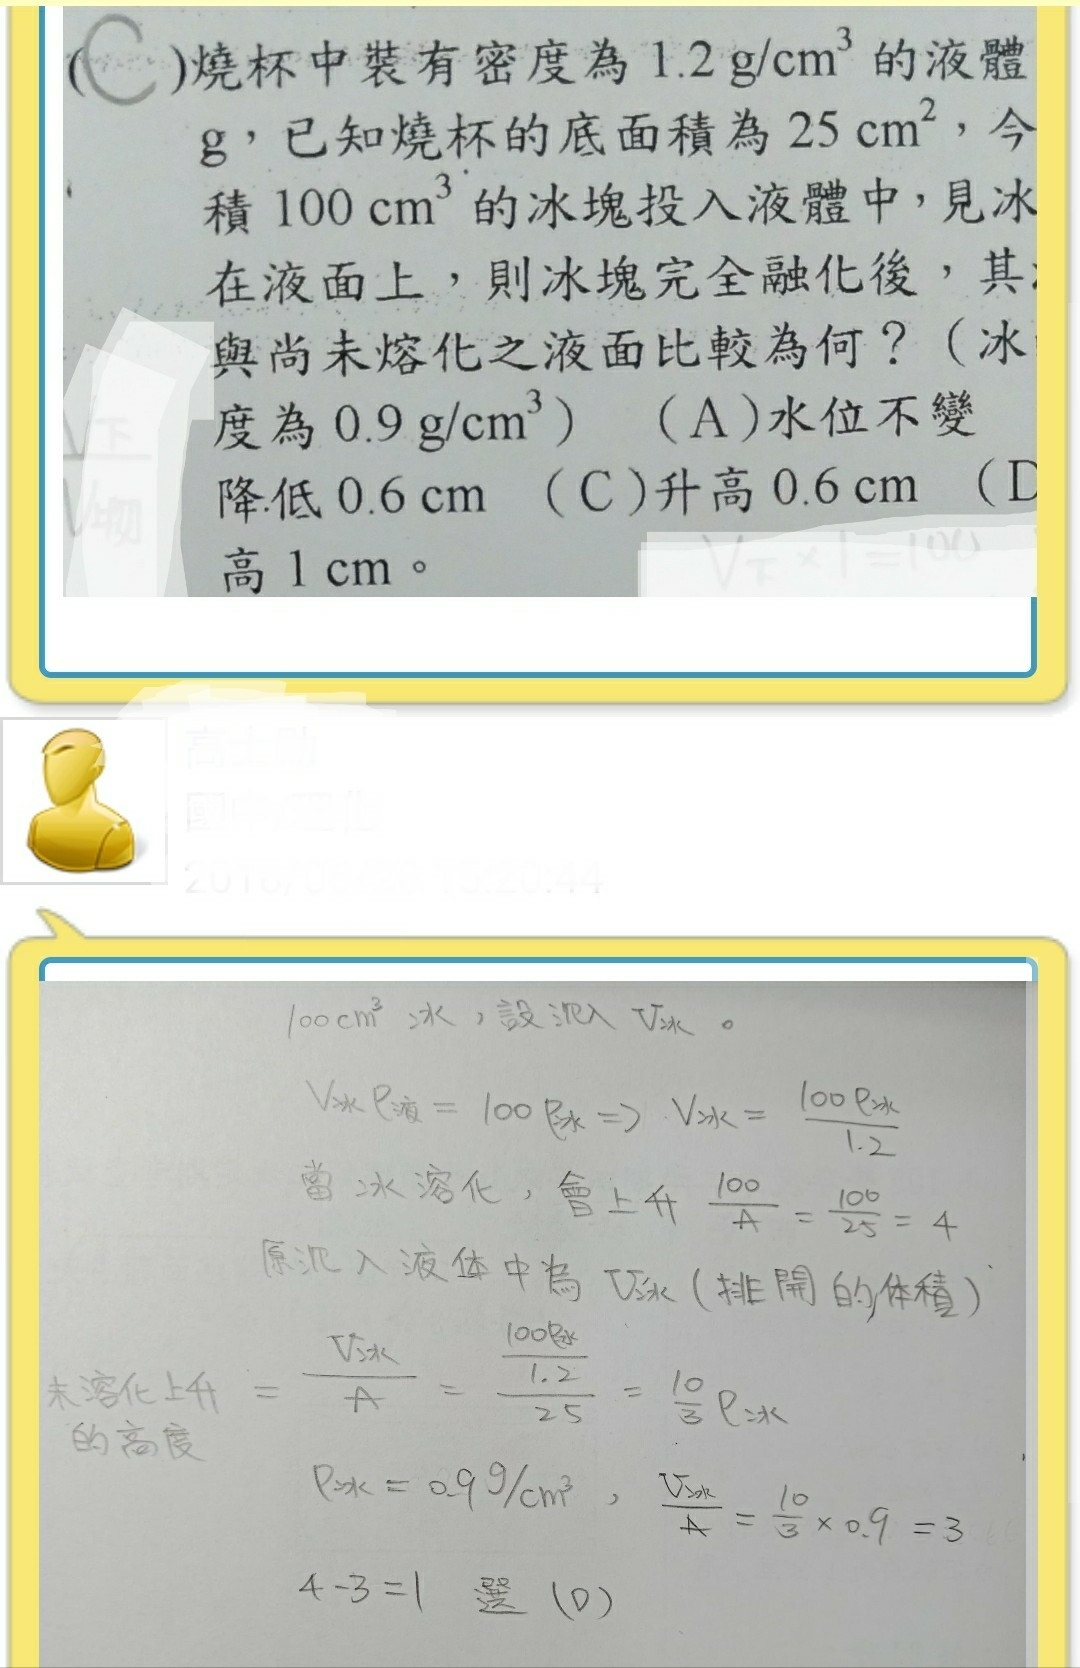 (C)燒杯中裝有密度為 1.2 g/cm³ 的液體
g，已知燒杯的底面積為 25 cm²，今
積 100 cm³ 的冰塊投入液體中，見冰
在液面上，則冰塊完全融化後，其
與尚未熔化之液面比較為何？（冰
度為 0.9 g/cm³） （A）水位不變
降低 0.6 cm （C）升高 0.6 cm （D
高 1 cm。
V下
V物
V下×1=100
100cm³ 冰，設沉入 V冰。
V冰ρ液 = 100ρ冰 => V冰 = 100ρ冰/1.2
當冰溶化，會上升 100/A = 100/25 = 4
原沉入液体中為 V冰（排開的体積）
未溶化上升的高度 = V冰/A = (100ρ冰/1.2)/25 = 10/3 ρ冰
ρ冰 = 0.9g/cm³， V冰/A = 10/3 × 0.9 = 3
4-3=1 選 (D)